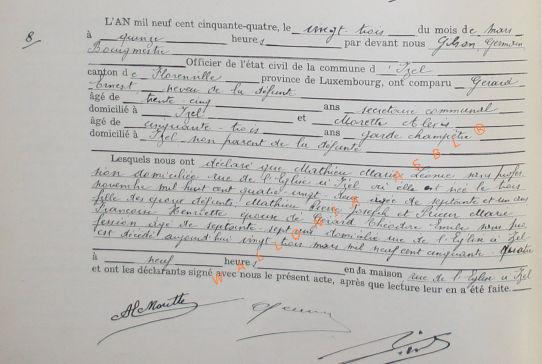 8
L'AN mil neuf cent cinquante-quatre, le vingt trois du mois de mars
à quinze heures par devant nous Gilson, Germain
Bourgmestre
Officier de l'état civil de la commune d'Izel
canton de Florenville province de Luxembourg, ont comparu Gérard
Ernest, neveu de la défunte
âgé de trente cinq ans secrétaire communal
domicilié à Izel et Morette Albert
âgé de cinquante-trois ans garde champêtre
domicilié à Izel non parent de la défunte
Lesquels nous ont déclaré que Mathieu Marie Léonie sans profes
non domiciliée rue de l'Eglise à Izel où elle est née le trois
novembre mil huit cent quatre vingt deux âgée de septante et un ans
fille des époux défunts, Mathieu Pierre Joseph et Marie
Françoise Henriette épouse de Gérard Théodore Emile sans pro
fession âgé de septante-sept ans domicilié rue de l'Eglise à Izel
est décédé aujourd'hui vingt trois mars mil neuf cent cinquante-quatre
à neuf heures en la maison rue de l'Eglise à Izel
et ont les déclarants signé avec nous le présent acte, après que lecture leur en a été faite.